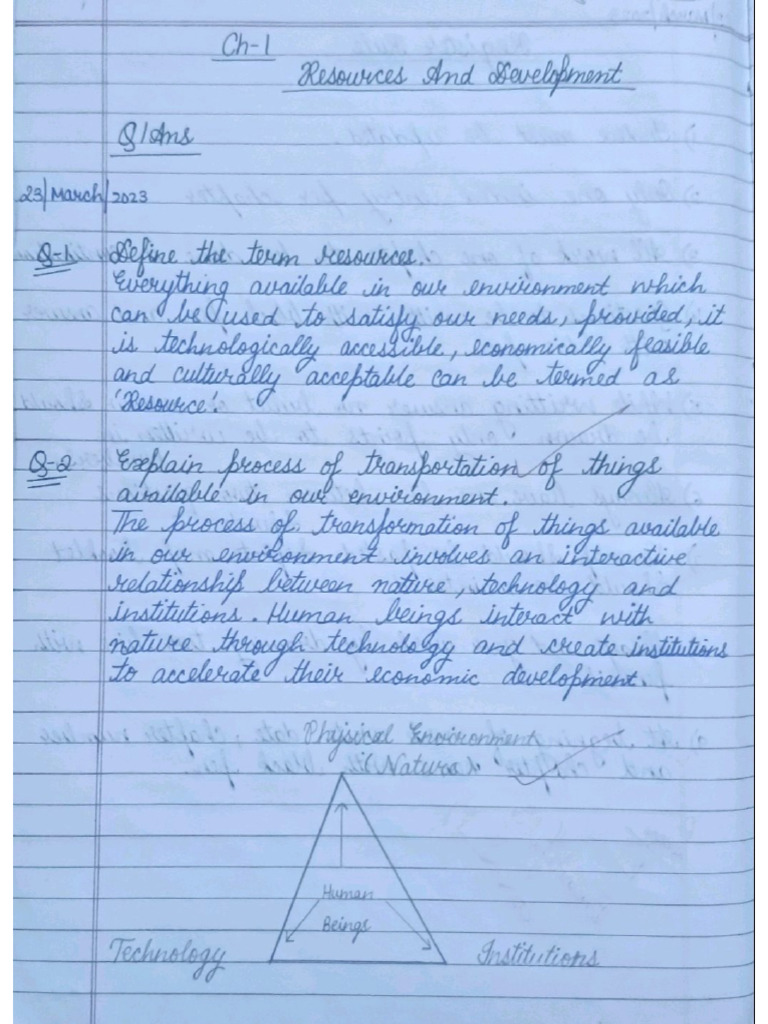 Ch-1
Resources And Development
Q/Ans
23/March/2023
Q-1 Define the term resources.
Everything available in our environment which
can be used to satisfy our needs, provided, it
is technologically accessible, economically feasible
and culturally acceptable can be termed as
'Resource'.
Q-2 Explain process of transportation of things
available in our environment.
The process of transformation of things available
in our environment involves an interactive
relationship between nature, technology and
institutions. Human beings interact with
nature through technology and create institutions
to accelerate their economic development.
Physical Environment
(Nature)
Human
Beings
Technology
Institutions